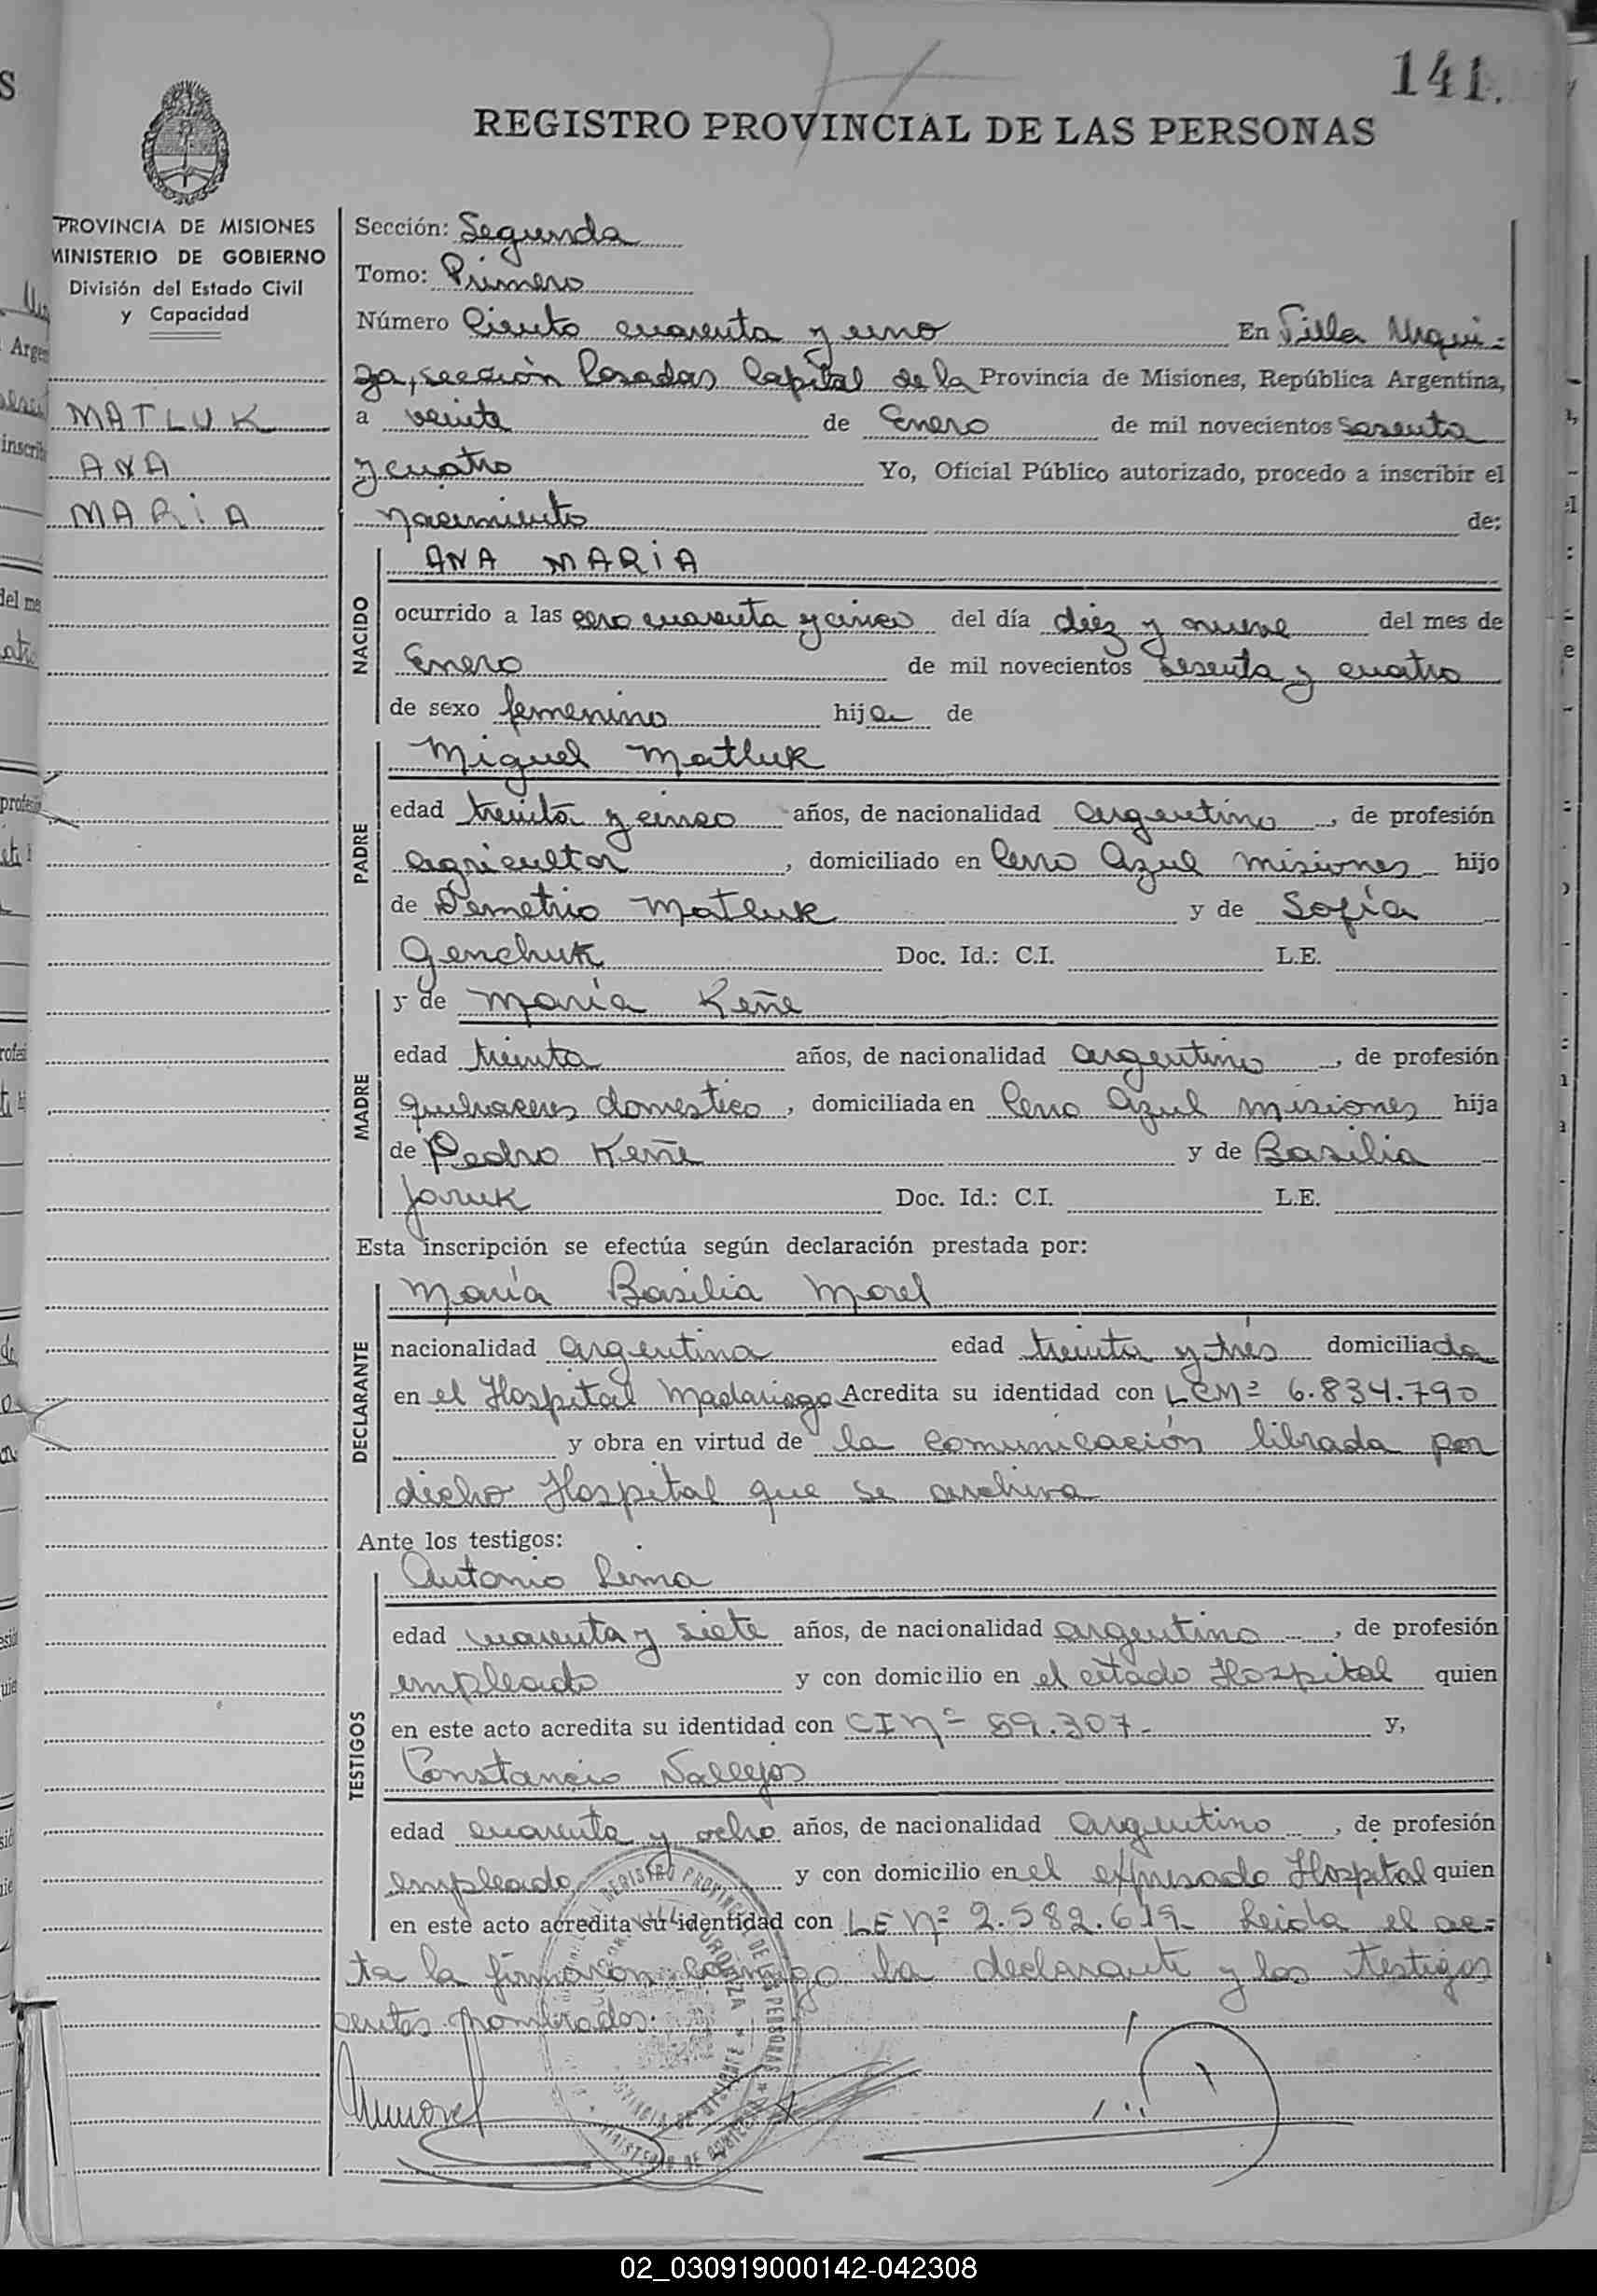 141.
REGISTRO PROVINCIAL DE LAS PERSONAS
PROVINCIA DE MISIONES
MINISTERIO DE GOBIERNO
División del Estado Civil
y Capacidad
MATLUK
ANA
MARIA
Sección: Segunda
Tomo: Primero
Número Ciento cuarenta y uno En Villa Urqui-
za, sección Posadas Capital de la Provincia de Misiones, República Argentina,
a veinte de Enero de mil novecientos sesenta
y cuatro Yo, Oficial Público autorizado, procedo a inscribir el
nacimiento de:
NACIDO
ANA MARIA
ocurrido a las cero cuarenta y cinco del día diez y nueve del mes de
Enero de mil novecientos sesenta y cuatro
de sexo femenino hija de
PADRE
Miguel Matluk
edad treinta y cinco años, de nacionalidad argentino, de profesión
agricultor, domiciliado en Cerro Azul Misiones hijo
de Demetrio Matluk y de Sofía
Genchuk Doc. Id.: C.I. L.E.
MADRE
y de María Keñe
edad treinta años, de nacionalidad argentina, de profesión
quehaceres domestico, domiciliada en Cerro Azul Misiones hija
de Pedro Keñe y de Basilia
Jaruk Doc. Id.: C.I. L.E.
Esta inscripción se efectúa según declaración prestada por:
DECLARANTE
María Basilia Morel
nacionalidad argentina edad treinta y trés domiciliada
en el Hospital Madariaga Acredita su identidad con LC Nº 6.834.790
y obra en virtud de la comunicación librada por
dicho Hospital que se archiva
Ante los testigos:
TESTIGOS
Antonio Lima
edad cuarenta y siete años, de nacionalidad argentino, de profesión
empleado y con domicilio en el citado Hospital quien
en este acto acredita su identidad con CI Nº 59.307- y,
Constancio Vallejos
edad cuarenta y ocho años, de nacionalidad argentino, de profesión
empleado y con domicilio en el expresado Hospital quien
en este acto acredita su identidad con LE Nº 2.582.619 Leida el ac-
ta la firmaron conmigo la declarante y los testigos
nombrados.
02_030919000142-042308